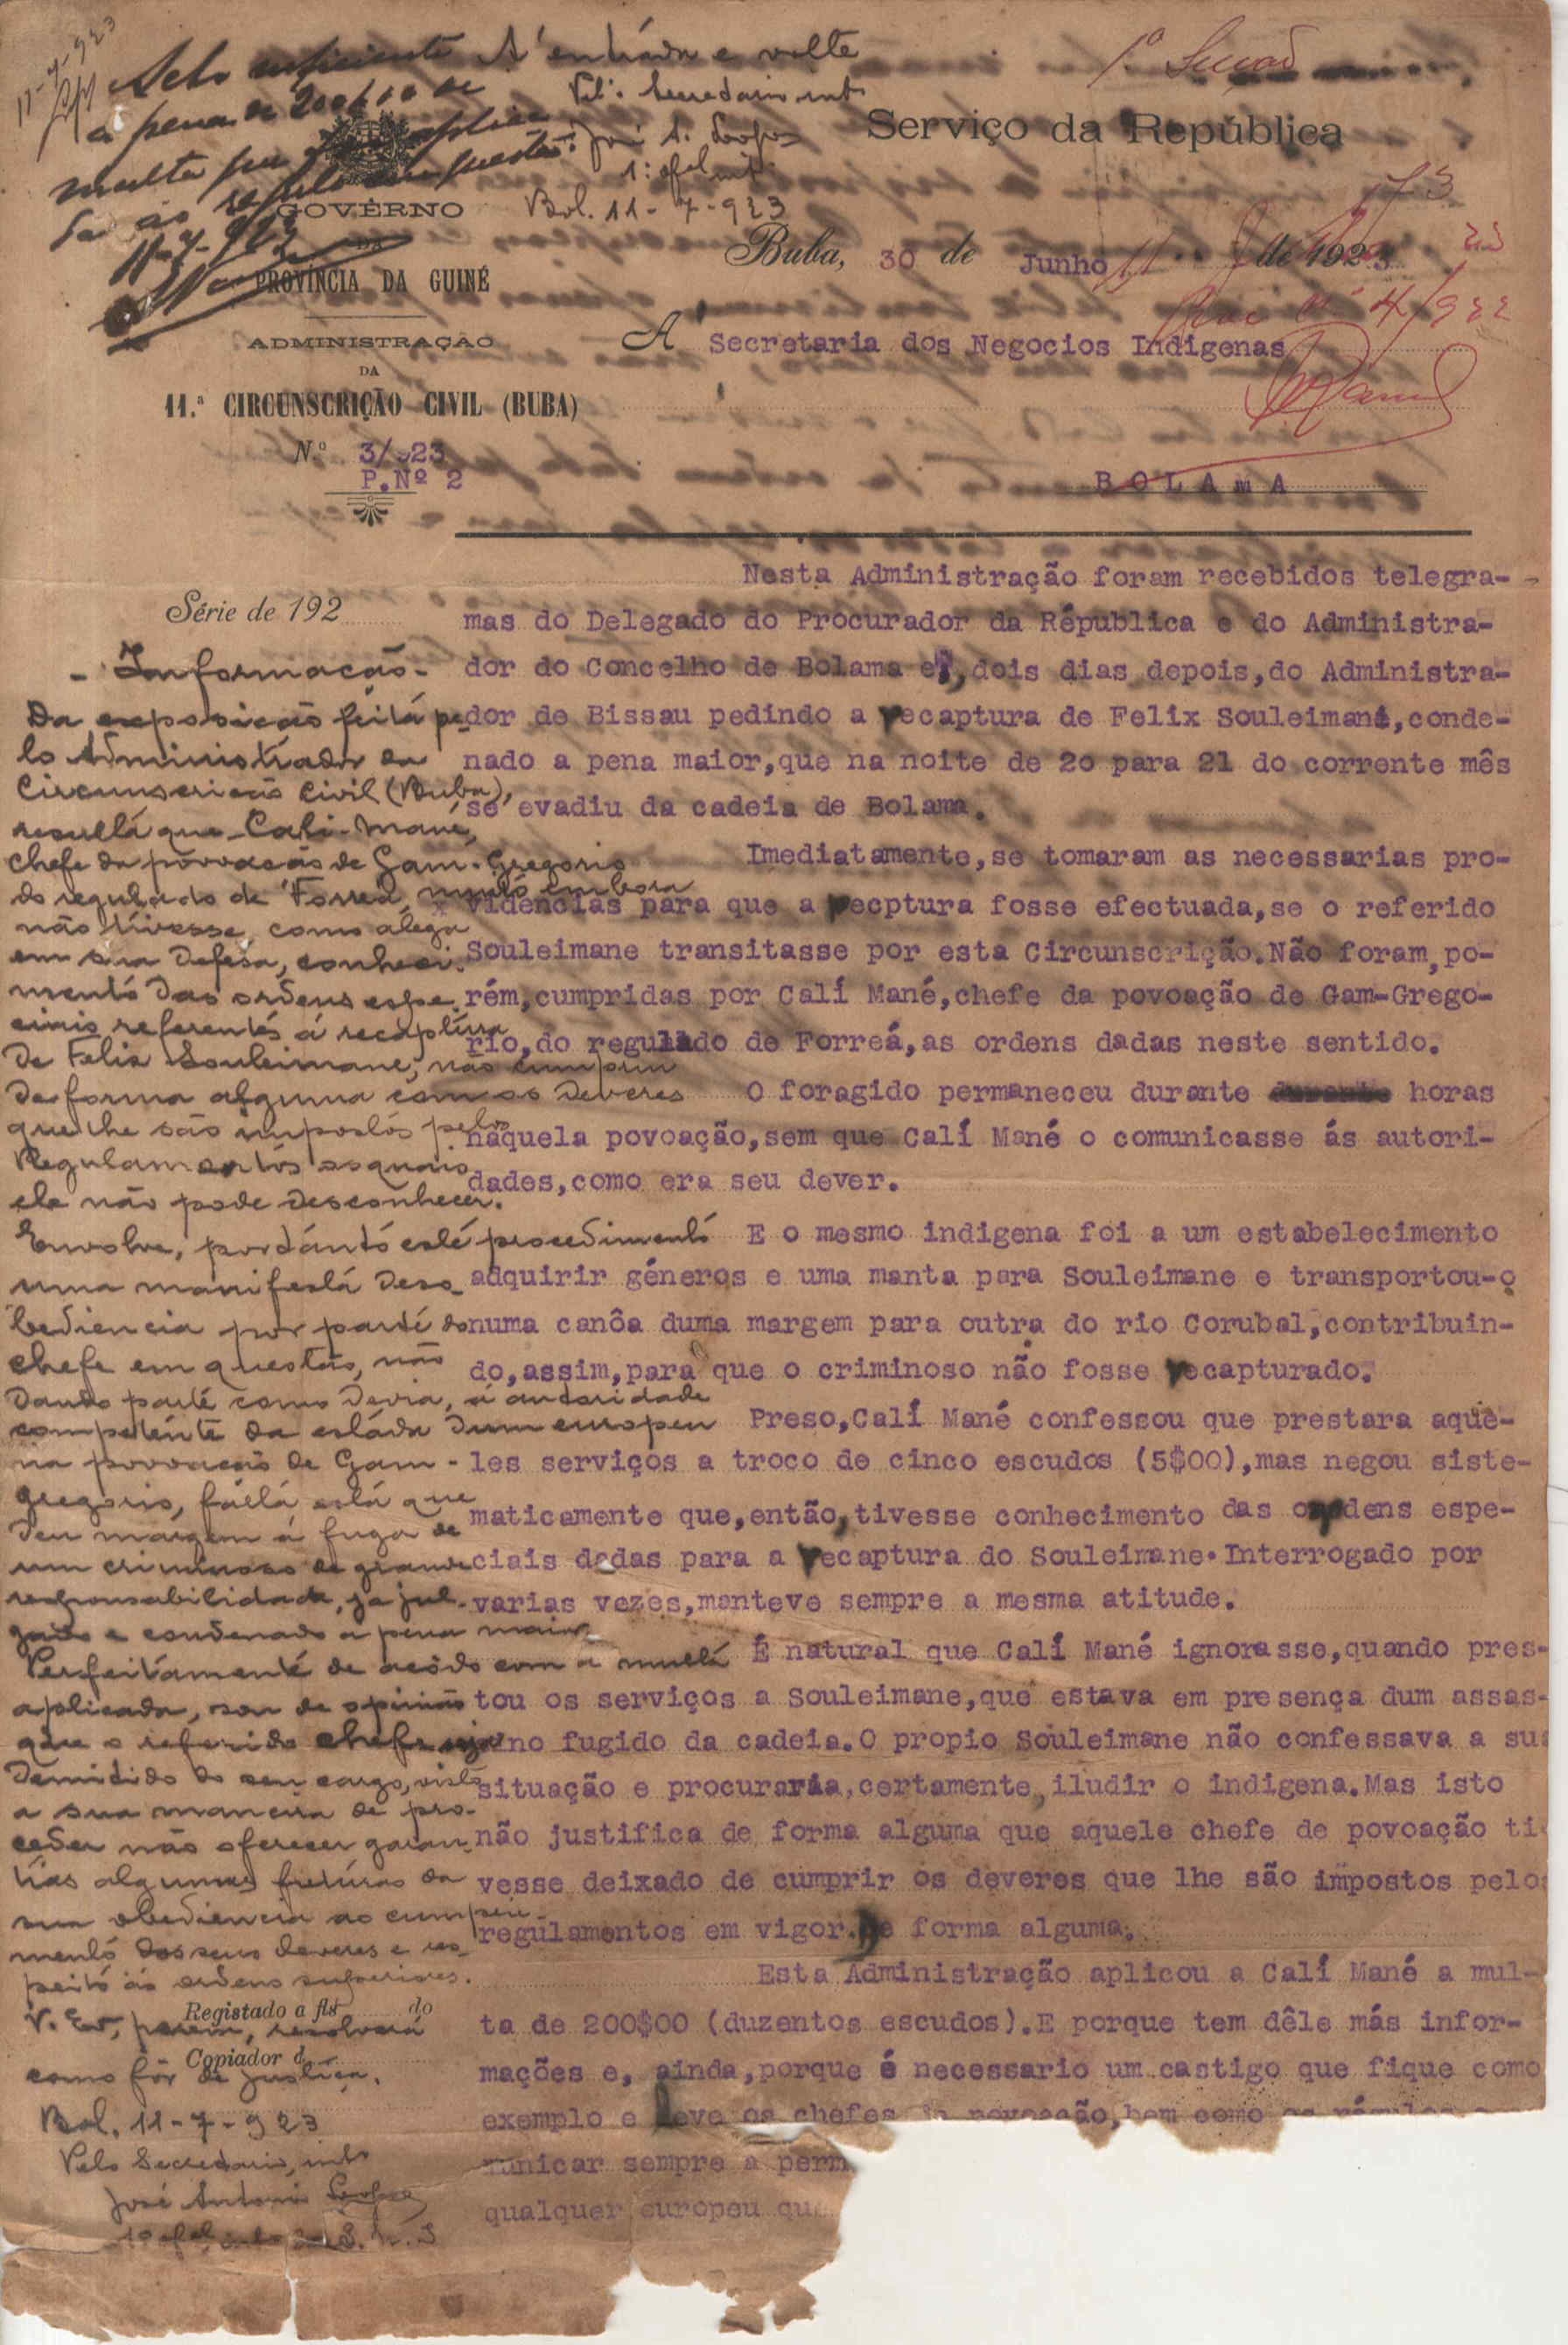 11-7-923
Acho suficiente
a pena de 200$00 de
multa
11-7-923
A' entráda e volte
Pel'o Secretario intº
José A. Lopes
1º ofal intº
Bol. 11-7-923
1ª Secção
Serviço da República
GOVÊRNO
DA
PROVÍNCIA DA GUINÉ
ADMINISTRAÇÃO
DA
11.ª CIRCUNSCRIÇÃO CIVIL (BUBA)
N.º 3/923
P.Nº 2
173
Buba, 30 de Junho de 1923
11 23
Proc nº 4/922
A' Secretaria dos Negocios Indigenas
BOLAMA
Série de 192
Nesta Administração foram recebidos telegra-
mas do Delegado do Procurador da Républica e do Administra-
dor do Concelho de Bolama e, dois dias depois,do Administra-
dor de Bissau pedindo a recaptura de Felix Souleimane,conde-
nado a pena maior,que na noite de 20 para 21 do corrente mês
se evadiu da cadeia de Bolama.
Imediatamente,se tomaram as necessarias pro-
videncias para que a recptura fosse efectuada,se o referido
Souleimane transitasse por esta Circunscrição.Não foram,po-
rém,cumpridas por Calí Mané,chefe da povoação de Gam-Grego-
rio,do regulado de Forreá,as ordens dadas neste sentido.
O foragido permaneceu durante horas
naquela povoação,sem que Calí Mané o comunicasse ás autori-
dades,como era seu dever.
E o mesmo indigena foi a um estabelecimento
adquirir géneros e uma manta para Souleimane e transportou-o
numa canôa duma margem para outra do rio Corubal,contribuin-
do,assim,para que o criminoso não fosse recapturado.
Preso,Calí Mané confessou que prestara aquê-
les serviços a troco de cinco escudos (5$00),mas negou siste-
maticamente que,então,tivesse conhecimento das ordens espe-
ciais dadas para a recaptura do Souleimane.Interrogado por
varias vezes,manteve sempre a mesma atitude.
É natural que Calí Mané ignorasse,quando pres-
tou os serviços a Souleimane,que estava em presença dum assas-
sino fugido da cadeia.O propio Souleimane não confessava a sua
situação e procuraria,certamente,iludir o indigena.Mas isto
não justifica de forma alguma que aquele chefe de povoação ti-
vesse deixado de cumprir os deveres que lhe são impostos pelos
regulamentos em vigor.De forma alguma.
Esta Administração aplicou a Calí Mané a mul-
ta de 200$00 (duzentos escudos).E porque tem dêle más infor-
mações e, ainda,porque é necessario um castigo que fique como
exemplo e leve os chefes da povoação,bem como os régulos
municar sempre a perm
qualquer europeu que
- Informação -
Da exposição feita pe-
lo Administrador da
Circunscrição Civil (Buba),
resulta que Cali-Mané,
chefe da povoação de Gam-Gregorio
do regulado de Forreá, muito embora
não tivesse, como alega
em sua defesa, conheci-
mento das ordens espe-
ciais referentes á recaptura
de Felix Souleimane, não cumpriu
de forma alguma com os deveres
que lhe são impostos pelos
Regulamentos os quais
ele não pode desconhecer.
Envolve, portánto este procedimento
uma manifesta deso-
bediencia por parte do
chefe em questão, não
dando parte como devia, á autoridade
competente da estáda dum europeu
na povoação de Gam-
gregorio, fálta esta que
deu margem á fuga de
um criminoso de grande
responsabilidade, já jul-
gado e condenado a pena maior.
Perfeitamente de acôrdo com a multa
aplicada, sou de opinião
que o referido chefe seja
demitido do seu cargo, visto
a sua maneira de pro-
ceder não oferecer garan-
tias algumas futúras da
sua obediencia ao cumpri-
mento dos seus deveres e res-
peito ás ordens superiores.
V. Exª, porem, resolverá
como fôr de justiça.
Registado a fls do
Copiador d
Bol. 11-7-923
Pelo Secretario, intº
José Antonio Lopes
1º ofal